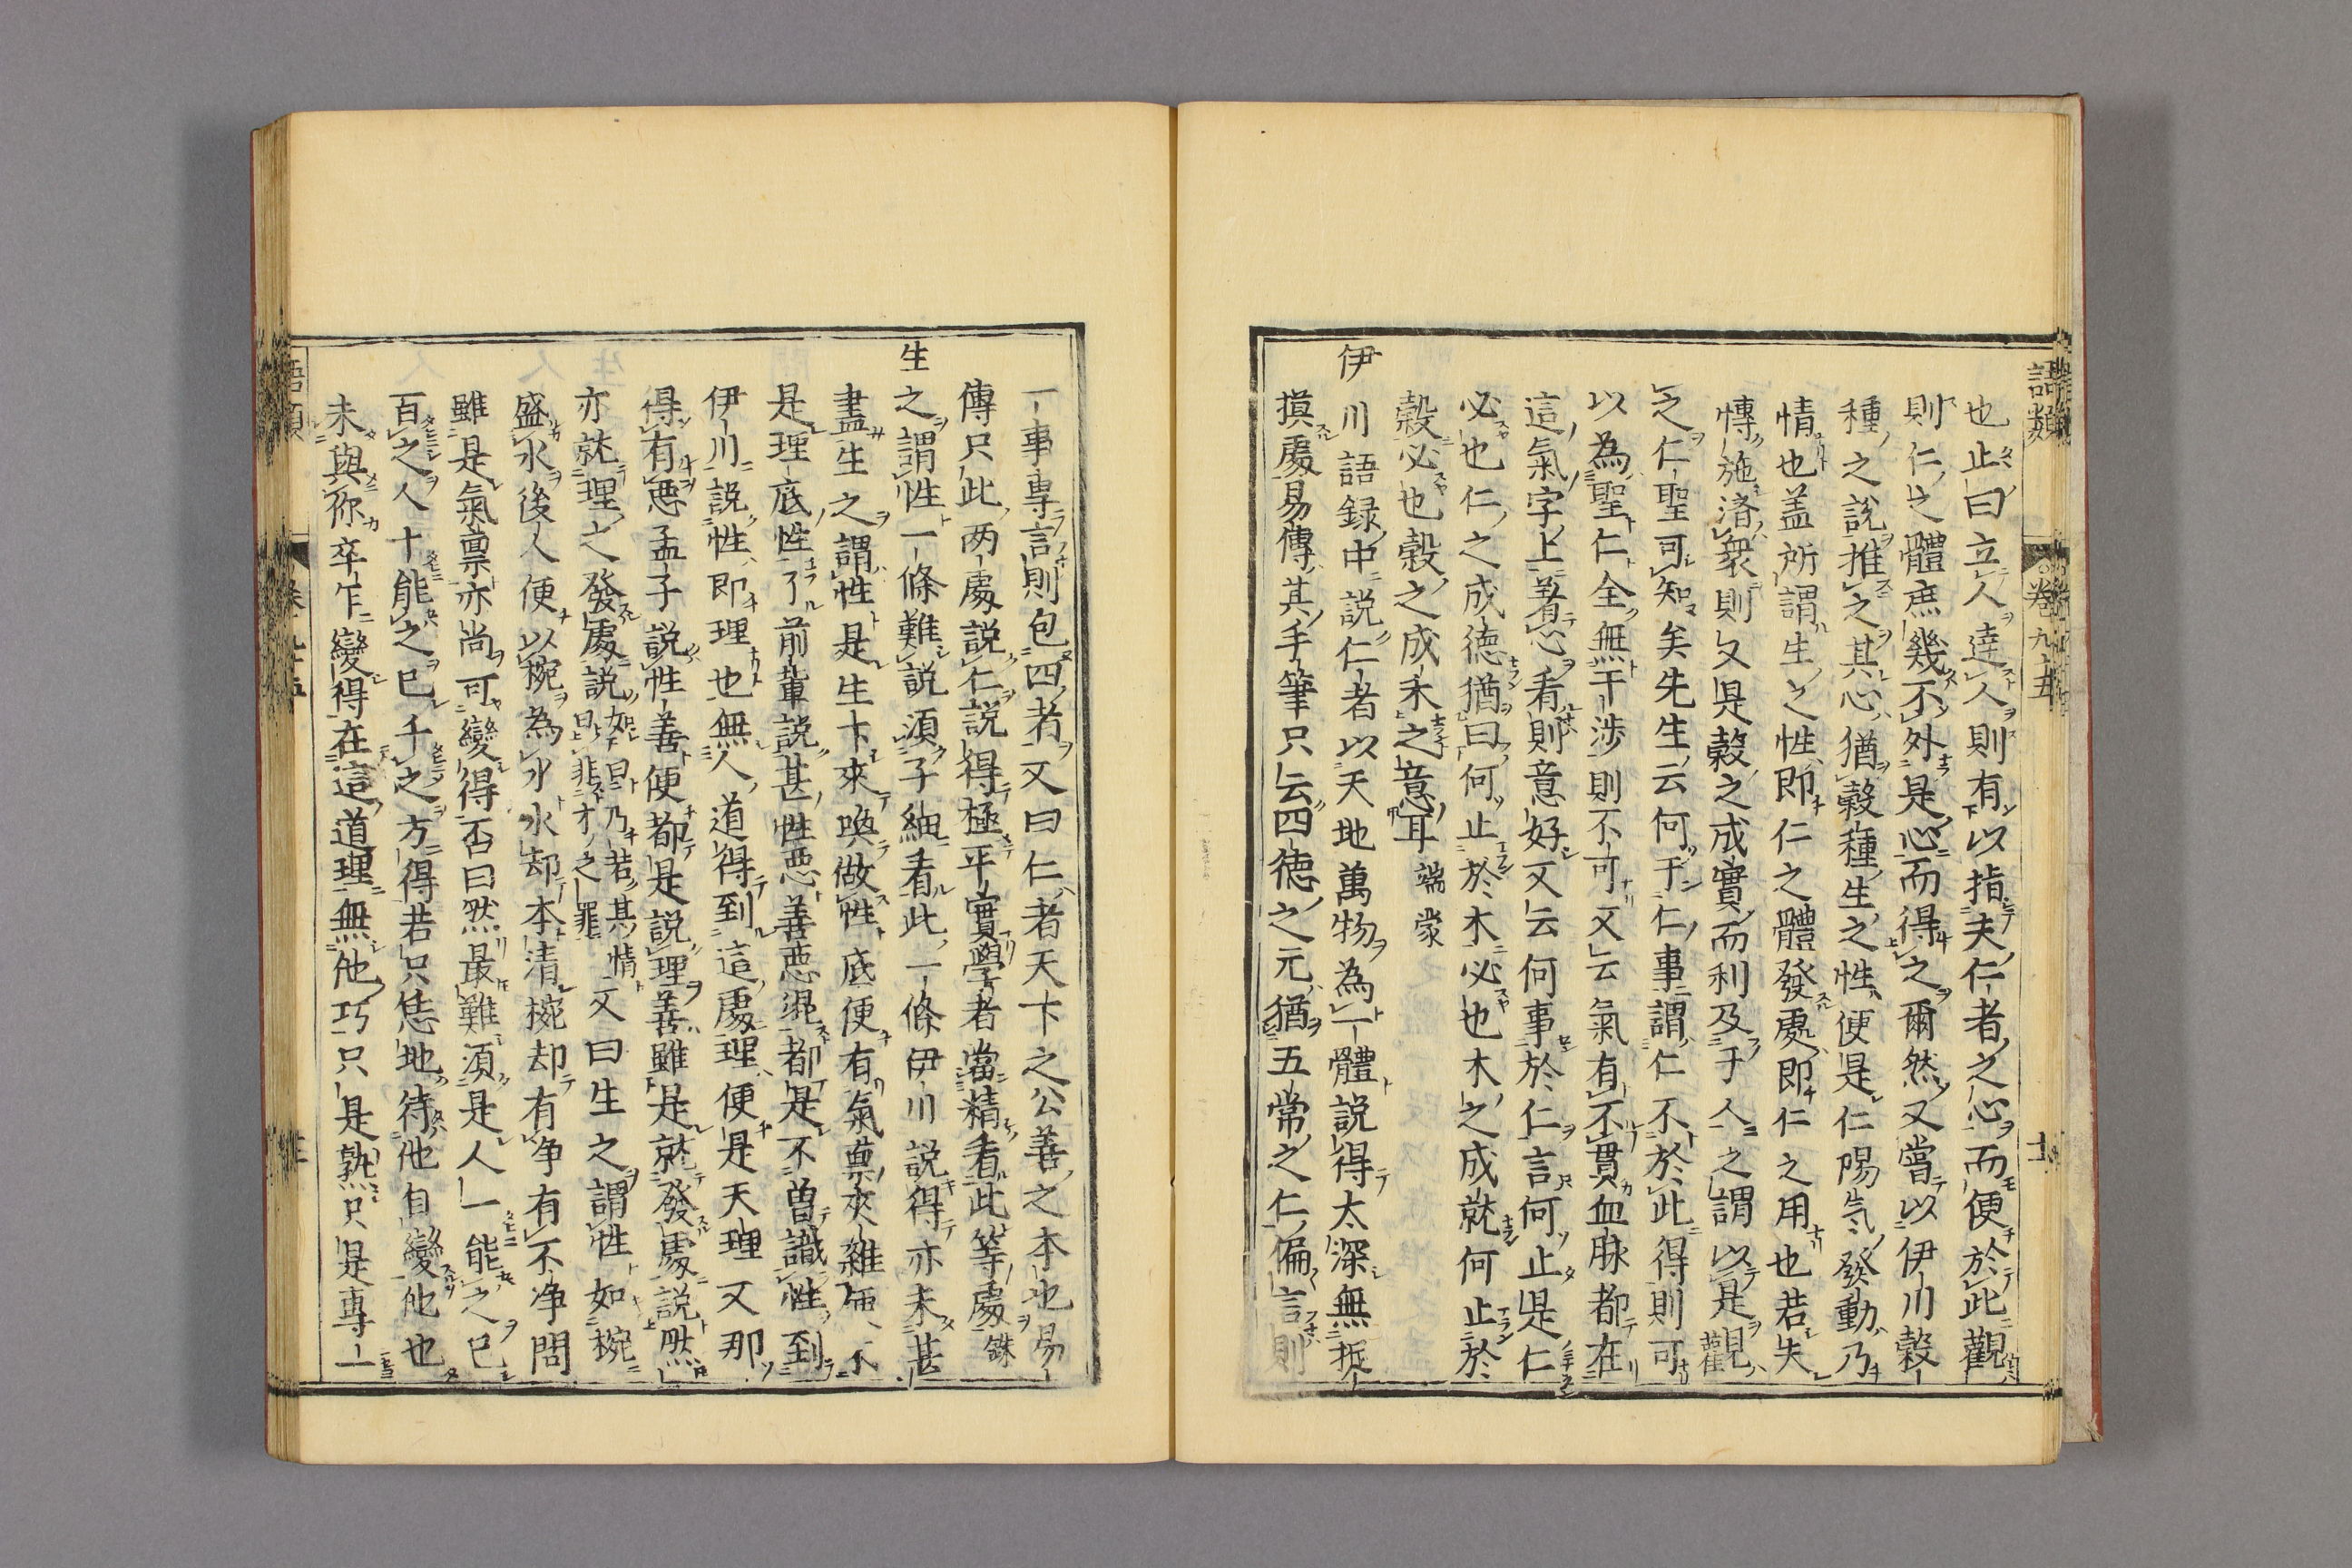 語類
卷九十五
十
也止曰立人達人則有以指夫仁者之心而便於此觀
則仁之體庶幾不外是心而得之爾然又嘗以伊川穀
種之説推之其心猶穀種生之性便是仁陽气發動乃
情也盖所謂生之性即仁之體發處即仁之用也若夫
愽施濟衆則又是穀之成實而利及于人之謂以是觀
之仁聖可知矣先生云何于仁事謂仁不於此得則可
以為聖仁全無干涉則不可又云氣有不貫血脉都在
這氣字上着心看則意好又云何事於仁言何止是仁
必也仁之成徳猶曰何止於木必也木之成就何止於
穀必也穀之成禾之意耳 端蒙
伊川語録中説仁者以天地萬物為一體説得太深無捉
摸處易傳其手筆只云四徳之元猶五常之仁偏言則
一事專言則包四者又曰仁者天下之公善之本也易
傳只此两處説仁説得極平實學者當精看此等處 銖
生之謂性一條難説須子細看此一條伊川説得亦未甚
盡生之謂性是生下來喚做性底便有氣禀夾雜便不
是理底性了前輩説甚性惡善惡混都是不曽識性到
伊川説性即理也無人道得到這處理便是天理又那
得有惡孟子説性善便都是説理善雖是就發處説然
亦就理之發處説如曰乃若其情曰非才之罪又曰生之謂性如椀
盛水後人便以椀為水水却本清椀却有净有不净問
雖是氣禀亦尚可變得否曰然最難須是人一能之已
百之人十能之已千之方得若只恁地待他自變他也
未與你卒乍變得在這道理無他巧只是熟只是專一
語類